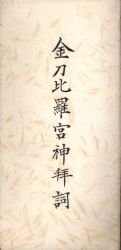 金刀比羅宮神拝詞